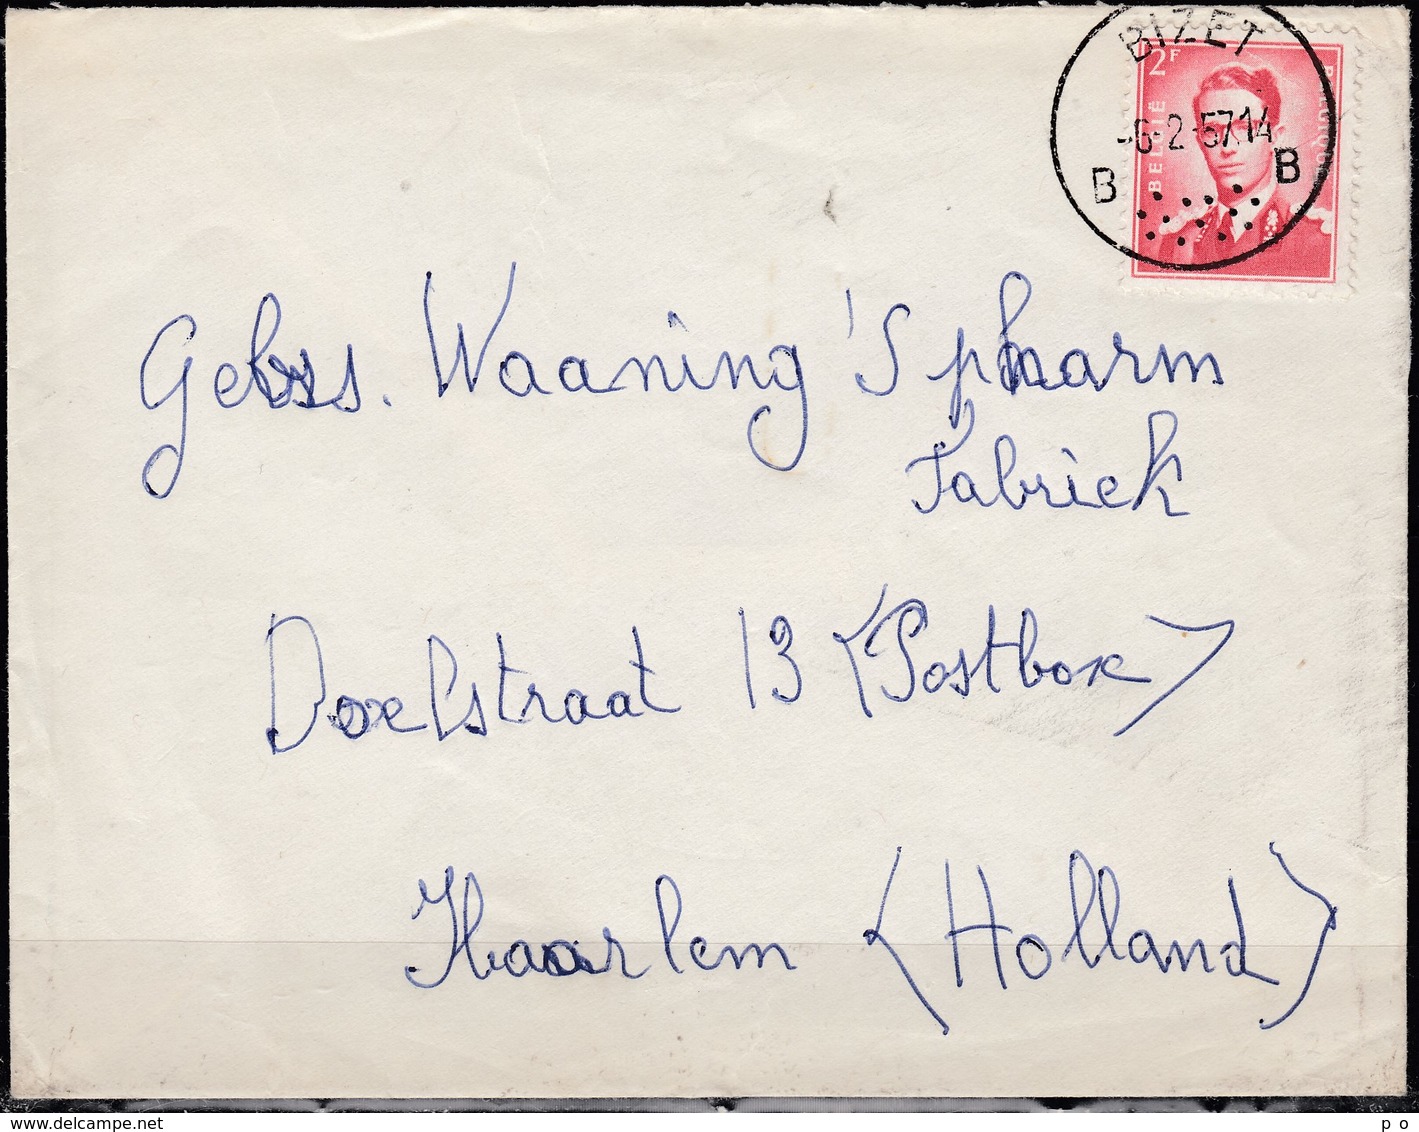 BIZET
2F
BELGIË
BELGIQUE
-6-2-57.14
B B
Gebrs. Waaning's pharm
Fabriek
Doelstraat 13 (Postbox)
Haarlem (Holland)
delcampe.net
p o